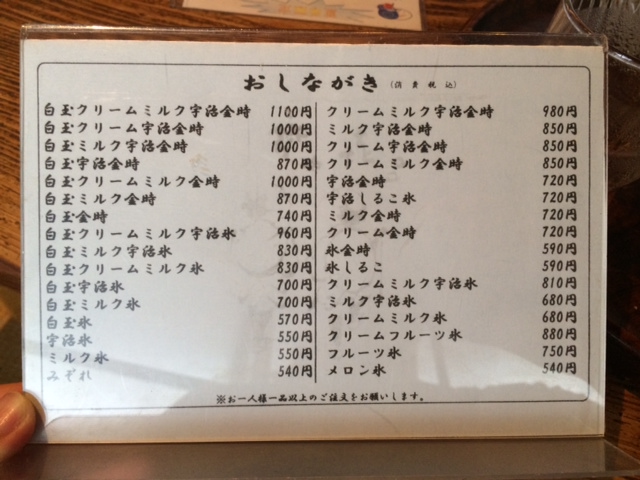 おしながき (消費税込)
白玉クリームミルク宇治金時 1100円
白玉クリーム宇治金時 1000円
白玉ミルク宇治金時 1000円
白玉宇治金時 870円
白玉クリームミルク金時 1000円
白玉ミルク金時 870円
白玉金時 740円
白玉クリームミルク宇治氷 960円
白玉ミルク宇治氷 830円
白玉クリームミルク氷 830円
白玉宇治氷 700円
白玉ミルク氷 700円
白玉氷 570円
宇治氷 550円
ミルク氷 550円
みぞれ 540円
クリームミルク宇治金時 980円
ミルク宇治金時 850円
クリーム宇治金時 850円
クリームミルク金時 850円
宇治金時 720円
宇治しるこ氷 720円
ミルク金時 720円
クリーム金時 720円
氷金時 590円
氷しるこ 590円
クリームミルク宇治氷 810円
ミルク宇治氷 680円
クリームミルク氷 680円
クリームフルーツ氷 880円
フルーツ氷 750円
メロン氷 540円
※お一人様一品以上のご注文をお願いします。